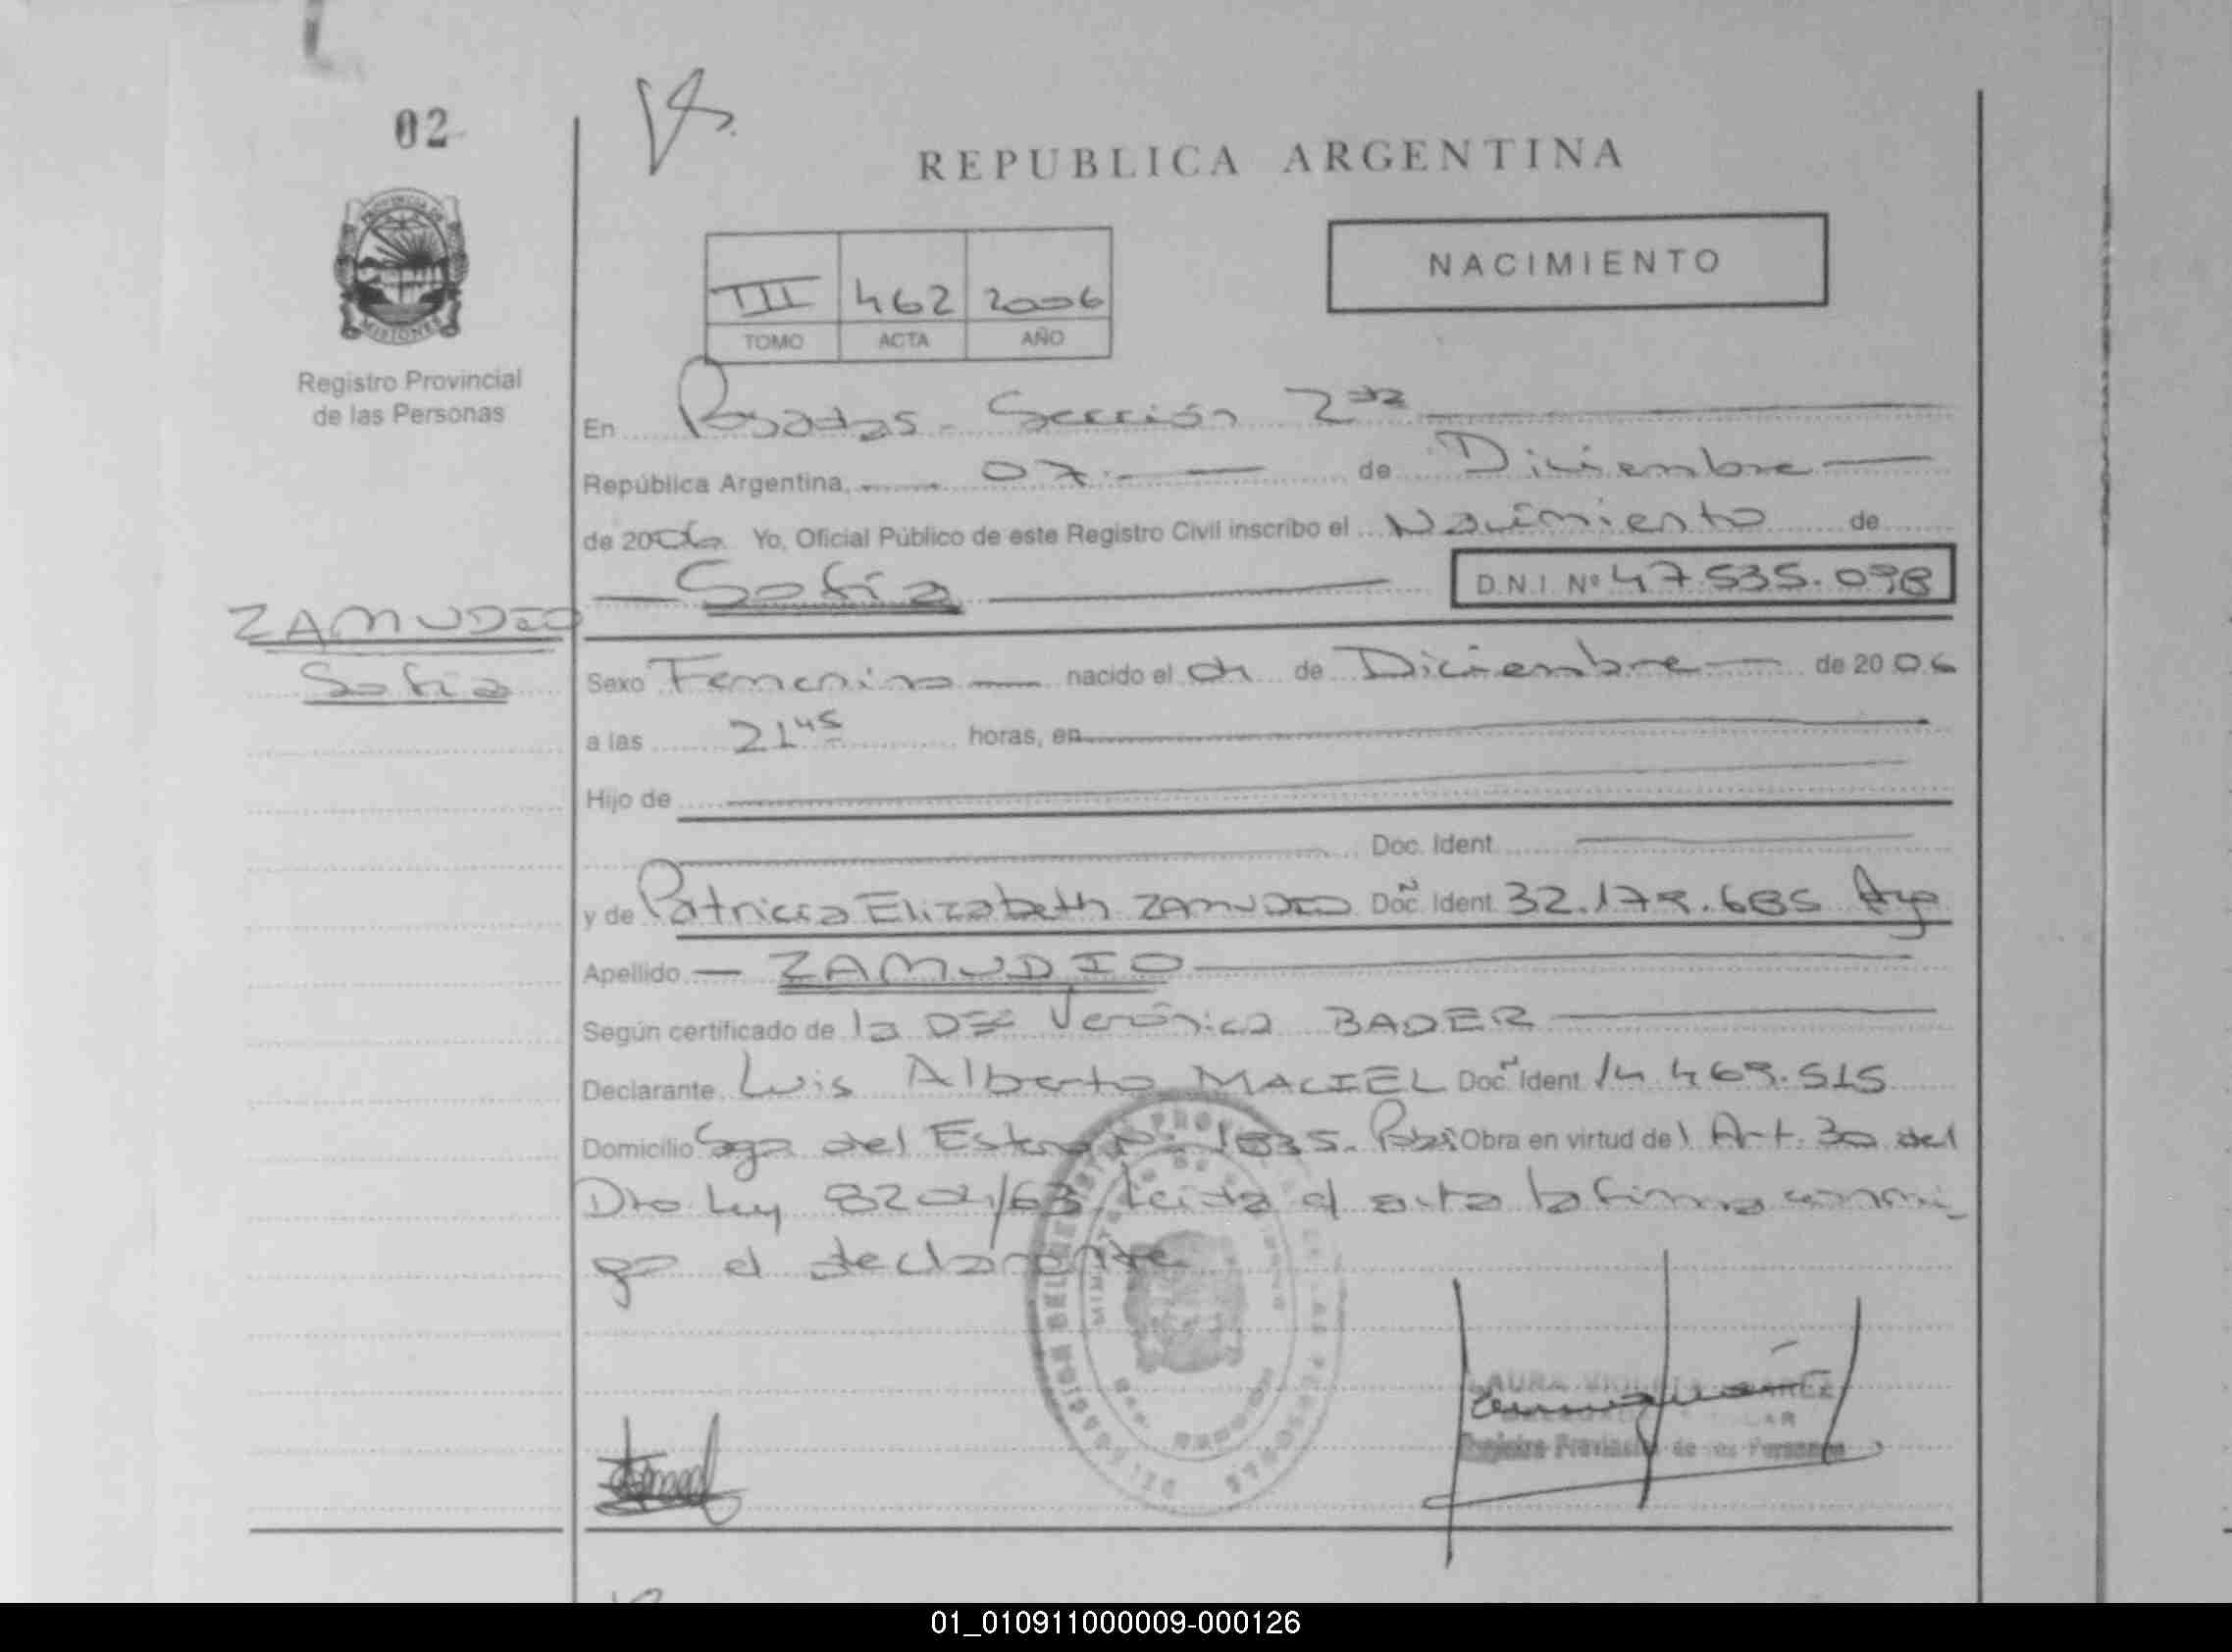 02
REPUBLICA ARGENTINA
PROVINCIA DE
MISIONES
Registro Provincial
de las Personas
NACIMIENTO
III 462 2006
TOMO ACTA AÑO
En Posadas - Sección 2da
República Argentina, 07 de Diciembre
de 2006 Yo, Oficial Público de este Registro Civil inscribo el Nacimiento de
Sofía D.N.I. Nº 47.535.098
ZAMUDIO
Sofía
Sexo Femenino nacido el 01 de Diciembre de 2006
a las 21 45 horas, en
Hijo de
Doc. Ident.
y de Patricia Elizabeth ZAMUDIO Doc. Ident. 32.179.685 Arg
Apellido ZAMUDIO
Según certificado de la Verónica BADER
Declarante Luis Alberto MACIEL Doc. Ident. 14.469.515
Domicilio Sgo del Estero Nº 1835. Obra en virtud del Art. 30 del
Dto Ley 8204/63. Leída el acta la firma conmi-
go el declarante
LAURA
Registro Provincial de las Personas
01_010911000009-000126